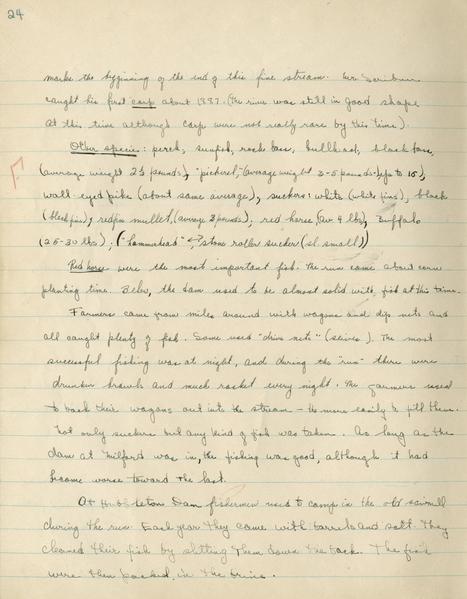 24
marks the beginning of the end of this fine stream. Mr. Scribner
caught his first carp about 1887. (The river was still in good shape
at this time although carp were not really rare by this time).
Other species: perch, sunfish, rock bass, bullhead, black bass,
(average weight 2½ pounds), "pickerel," (average weight 3-5 pounds-up to 15),
wall eyed pike (about same average), suckers: white (white fins), black
(black fins), redfin mullet, (average 2 pounds), red horse (Av 4 lbs), Buffalo
(25-30 lbs); ("hammerhead" ↔ stone roller sucker (sl. small))
Red horse were the most important fish. The run came about corn
planting time. Below, the dam used to be almost solid with fish at this time.
Farmers came from miles around with wagons and dip nets and
all caught plenty of fish. Some used "drive nets" (seines). The most
successful fishing was at night, and during the "run" there were
drunken brawls and much racket every night. The farmers used
to back their wagons out into the stream - the more easily to fill them.
Not only suckers but any kind of fish was taken. As long as the
dam at Milford was in, the fishing was good, although it had
become worse toward the last.
At Hubbleton Dam fishermen used to camp in the old sawmill
during the run. Each year they came with barrels and salt. They
cleaned their fish by slitting them down the back. The fish
were then packed in the brine.